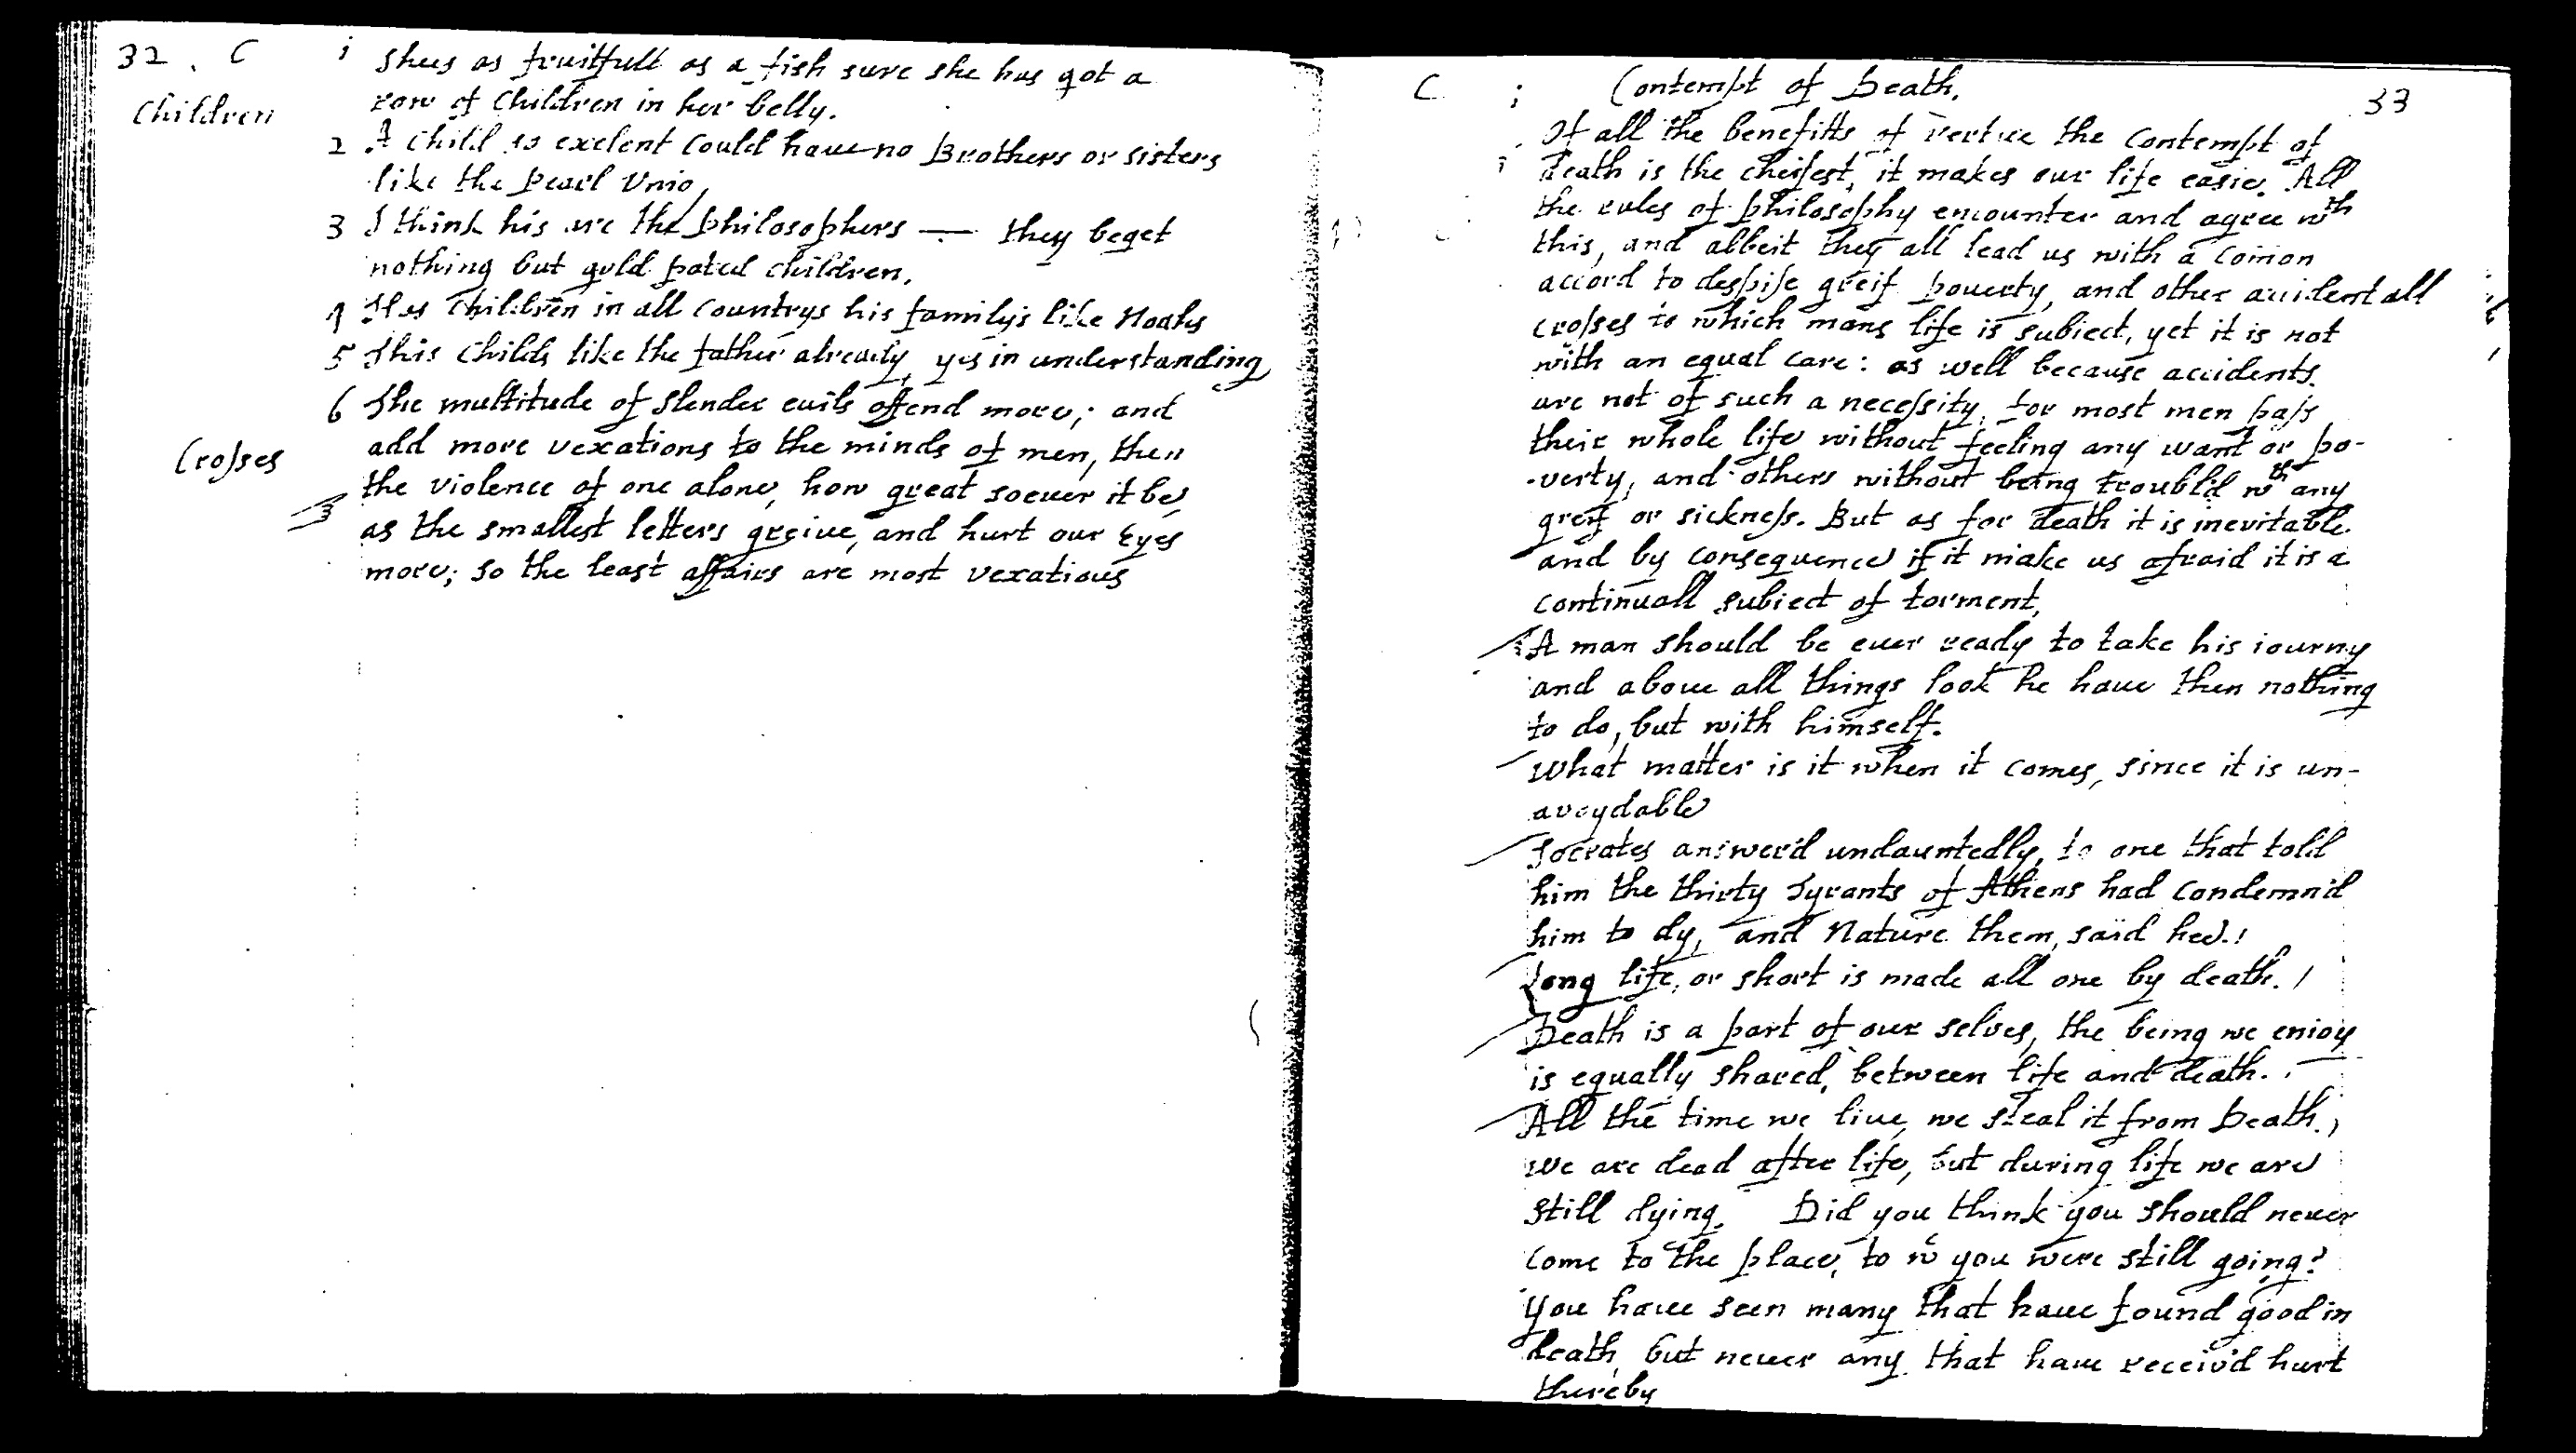 32. C
Children
1 Shees as fruitfull as a fish sure she has got a
row of Children in her belly.
2 A Child so exelent Could haue no Brothers or sisters
like the pearl Vnio,
3 I think his are the philosophers — they beget
nothing but gold pated children.
4 Has Children in all Countrys his family's like Noahs
5 This Childs like the father already, yes in understanding
6 The multitude of slender euils offend more; and
add more vexations to the minds of men, then
Crosses
the violence of one alone, how great soeuer it be,
as the smallest letters greiue, and hurt our Eyes
more; so the least affairs are most vexatious
C
33
Contempt of Death.
Of all the benefitts of vertue the Contempt of
death is the cheifest, it makes our life easie. All
the rules of philosophy encounter and agree wth
this, and albeit they all lead us with a Comon
accord to despise greif pouerty, and other accidentall
crosses to which mans life is subiect, yet it is not
with an equal care: as well because accidents
are not of such a necessity, for most men pass
their whole life without feeling any want or po-
verty, and others without being troubl'd wth any
greif or sickness. But as for death it is inevitable
and by consequence if it make us afraid it is a
continuall subiect of torment,
A man should be euer ready to take his iourny
and aboue all things look he haue then nothing
to do, but with himself.
What matter is it when it comes, since it is un-
avoydable
Socrates answer'd undauntedly, to one that told
him the thirty Tyrants of Athens had Condemn'd
him to dy, and Nature them, said hee.
Long life, or short is made all one by death.
Death is a part of our selves, the being we enioy
is equally shared, between life and death.
All the time we liue, we steal it from Death,
we are dead after life, but during life we are
still dying. Did you think you should never
Come to the place, to wc you were still going?
You haue seen many that haue found good in
death, but neuer any that haue receiv'd hurt
thereby